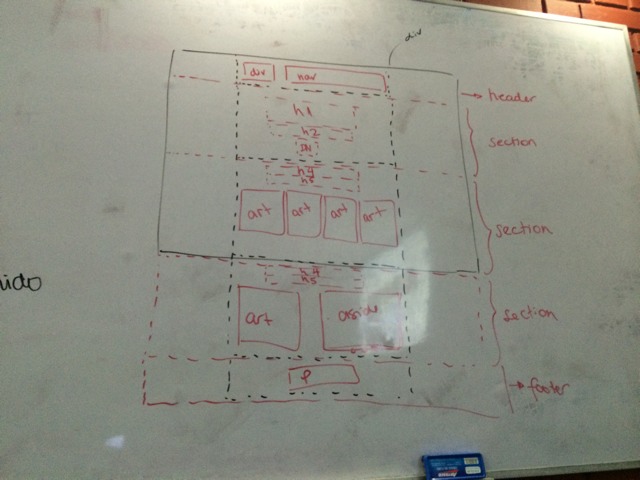 div
div nav
header
h1
h2
section
h4
h5
art art art art
section
h4
h5
art asside
section
p
footer